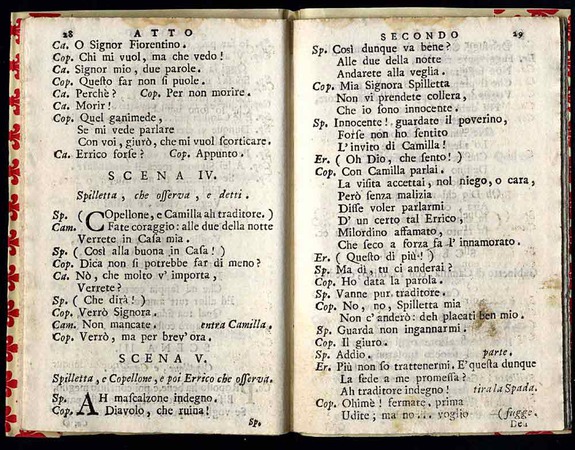 28 ATTO
Ca. O Signor Fiorentino.
Cop. Chi mi vuol, ma che vedo!
Ca. Signor mio, due parole.
Cop. Queſto far non ſi puole.
Ca. Perchè? Cop. Per non morire.
Ca. Morir!
Cop. Quel ganimede,
Se mi vede parlare
Con voi, giurò, che mi vuol ſcorticare.
Ca. Errico forſe? Cop. Appunto.
SCENA IV.
Spilletta, che oſſerva, e detti.
Sp. (Copellone, e Camilla ah traditore.)
Cam. Fate coraggio: alle due della notte
Verrete in Caſa mia.
Sp. (Così alla buona in Caſa!)
Cop. Dica non ſi potrebbe far di meno?
Ca. Nò, che molto v' importa,
Verrete?
Sp. (Che dirà!)
Cop. Verrò Signora.
Cam. Non mancate. entra Camilla.
Cop. Verrò, ma per brev' ora.
SCENA V.
Spilletta, e Copellone, e poi Errico che oſſerva.
Sp. AH maſcalzone indegno.
Cop. Diavolo, che ruina!
Sp.
SECONDO 29
Sp. Così dunque va bene?
Alle due della notte
Andarete alla veglia.
Cop. Mia Signora Spilletta
Non vi prendete collera,
Che io ſono innocente.
Sp. Innocente! guardate il poverino,
Forſe non ho ſentito
L' invito di Camilla!
Er. (Oh Dio, che ſento!)
Cop. Con Camilla parlai.
La viſita accettai, nol niego, o cara,
Però senza malizia
Diſſe voler parlarmi
D' un certo tal Errico,
Milordino affamato,
Che ſeco a forza fa l' innamorato.
Er. (Queſto di più!)
Sp. Ma di, tu ci anderai?
Cop. Ho data la parola.
Sp. Vanne pur traditore.
Cop. No, no, Spilletta mia
Non c' anderò: deh placati ben mio.
Sp. Guarda non ingannarmi.
Cop. Il giuro.
Sp. Addio. parte.
Er. Più non ſo trattenermi. E'queſta dunque
La fede a me promeſſa?
Ah traditore indegno! tira la Spada.
Cop. Ohimè! fermate, prima
Udite; ma no... voglio (fugge.